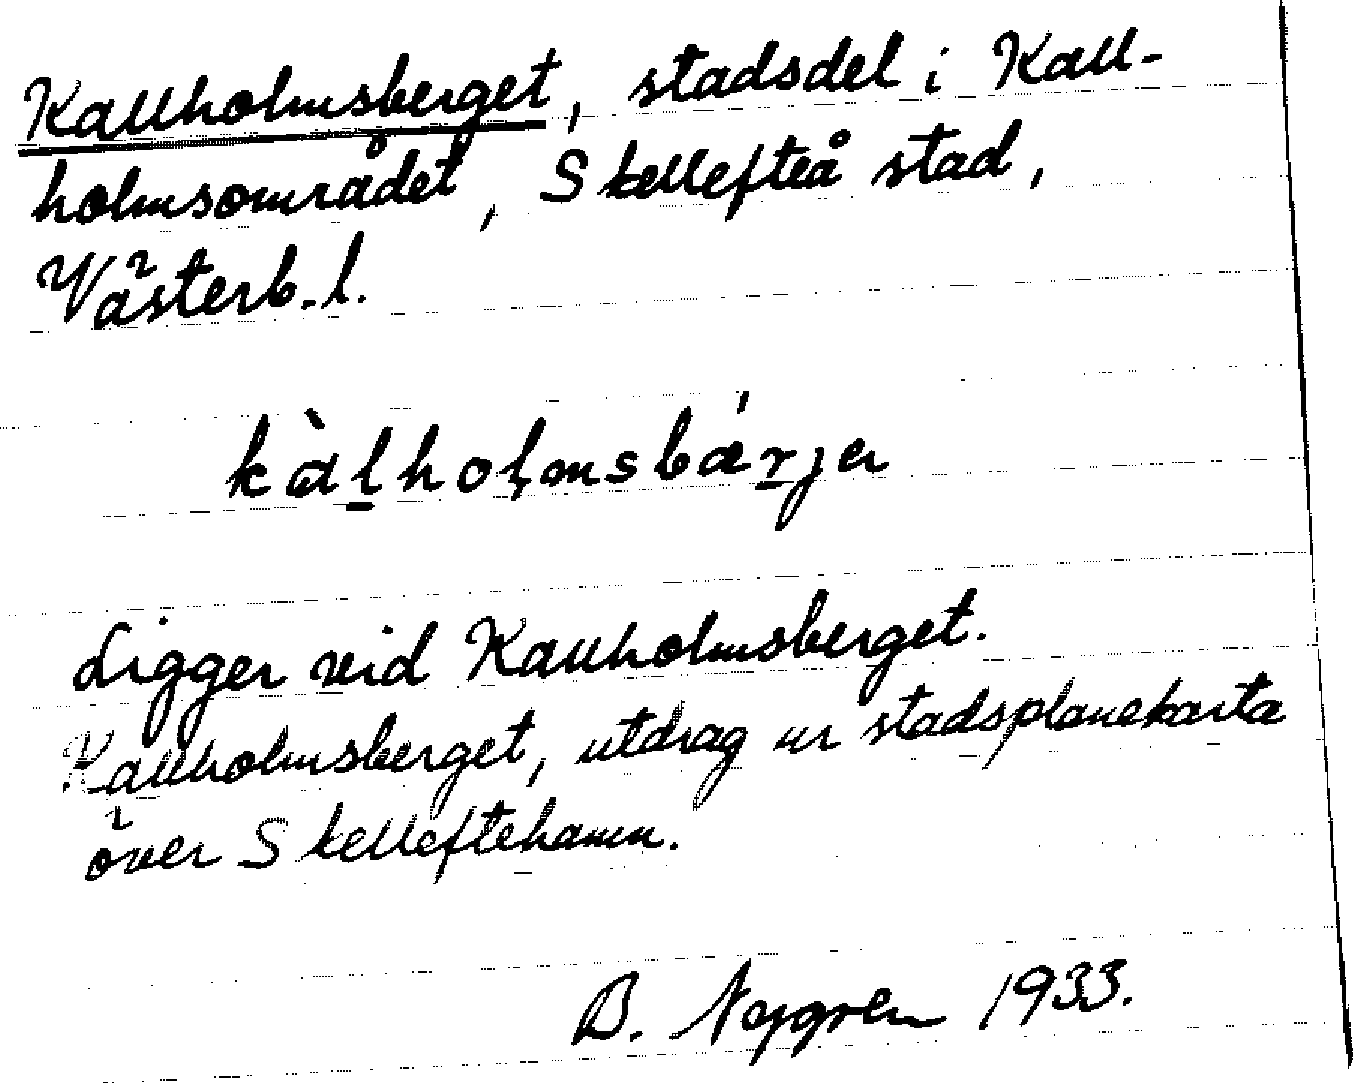 Kallholmsberget, stadsdel i Kall-
holmsområdet, Skellefteå stad,
Västerb. l.
kàl̠hoḷmsbá̈r̠jen
Ligger vid Kallholmsberget.
Kallholmsberget, utdrag ur stadsplanekarta
över Skelleftehamn.
B. Nygren 1933.